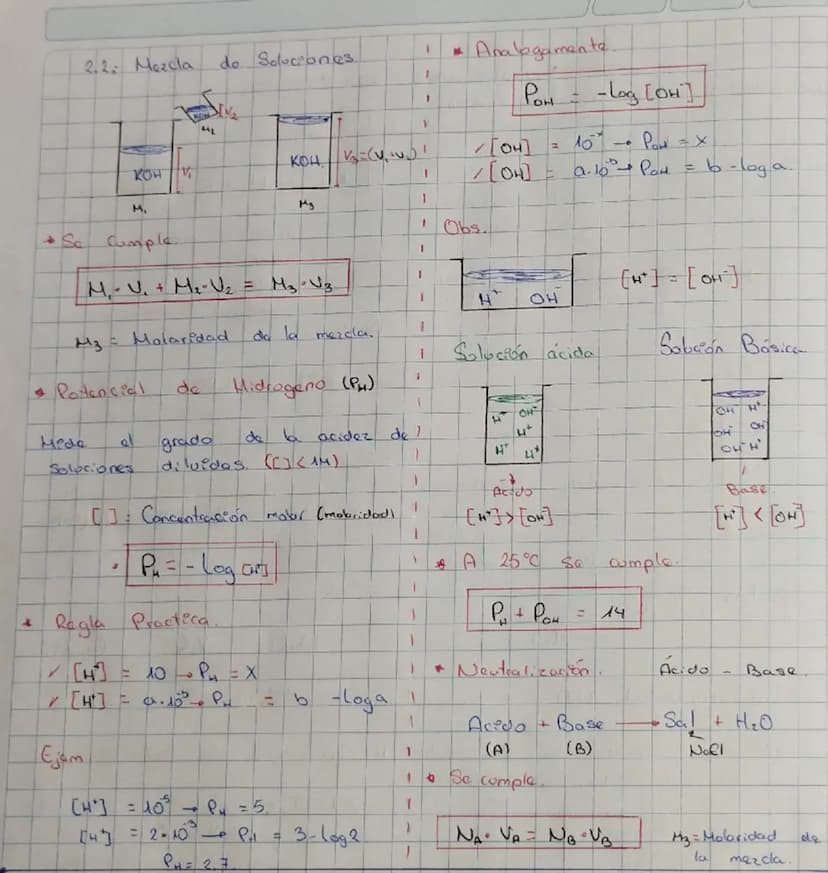 2.2.: Mezcla de Soluciones
V2
M2
KOH
V1
M1
KOH
V3=(V1+V2)
M3
* Se cumple
M1·V1 + M2·V2 = M3·V3
M3 = Molaridad de la mezcla.
* Potencial de Hidrogeno (PH)
Mide el grado de la acidez de
soluciones diluidas. ([]<1M)
[ ]: Concentración molar (molaridad)
· PH = -Log[H+]
* Regla Practica.
✓ [H+] = 10 → PH = x
✓ [H+] = a·10-b → PH = b -loga
Ejem
[H+] = 10-5 → PH = 5
[H+] = 2·10-3 → PH = 3-log2
PH = 2,7
* Analogamente
POH = -log [OH-]
✓ [OH] = 10-x → POH = x
✓ [OH] = a·10-b → POH = b -loga
Obs.
H+ OH-
[H+] = [OH-]
Solución ácida Solución Básica
H+ OH-
H+
H+ H+
OH- H+
OH- OH
OH- H+
Ácido
Base
[H+]>[OH] [H+] < [OH]
* A 25°C se cumple.
PH + POH = 14
* Neutralización. Ácido - Base.
Acido + Base → Sal + H2O
(A) (B) NaCl
* Se cumple.
NA·VA = NB·VB
M3=Molaridad de
la mezcla.